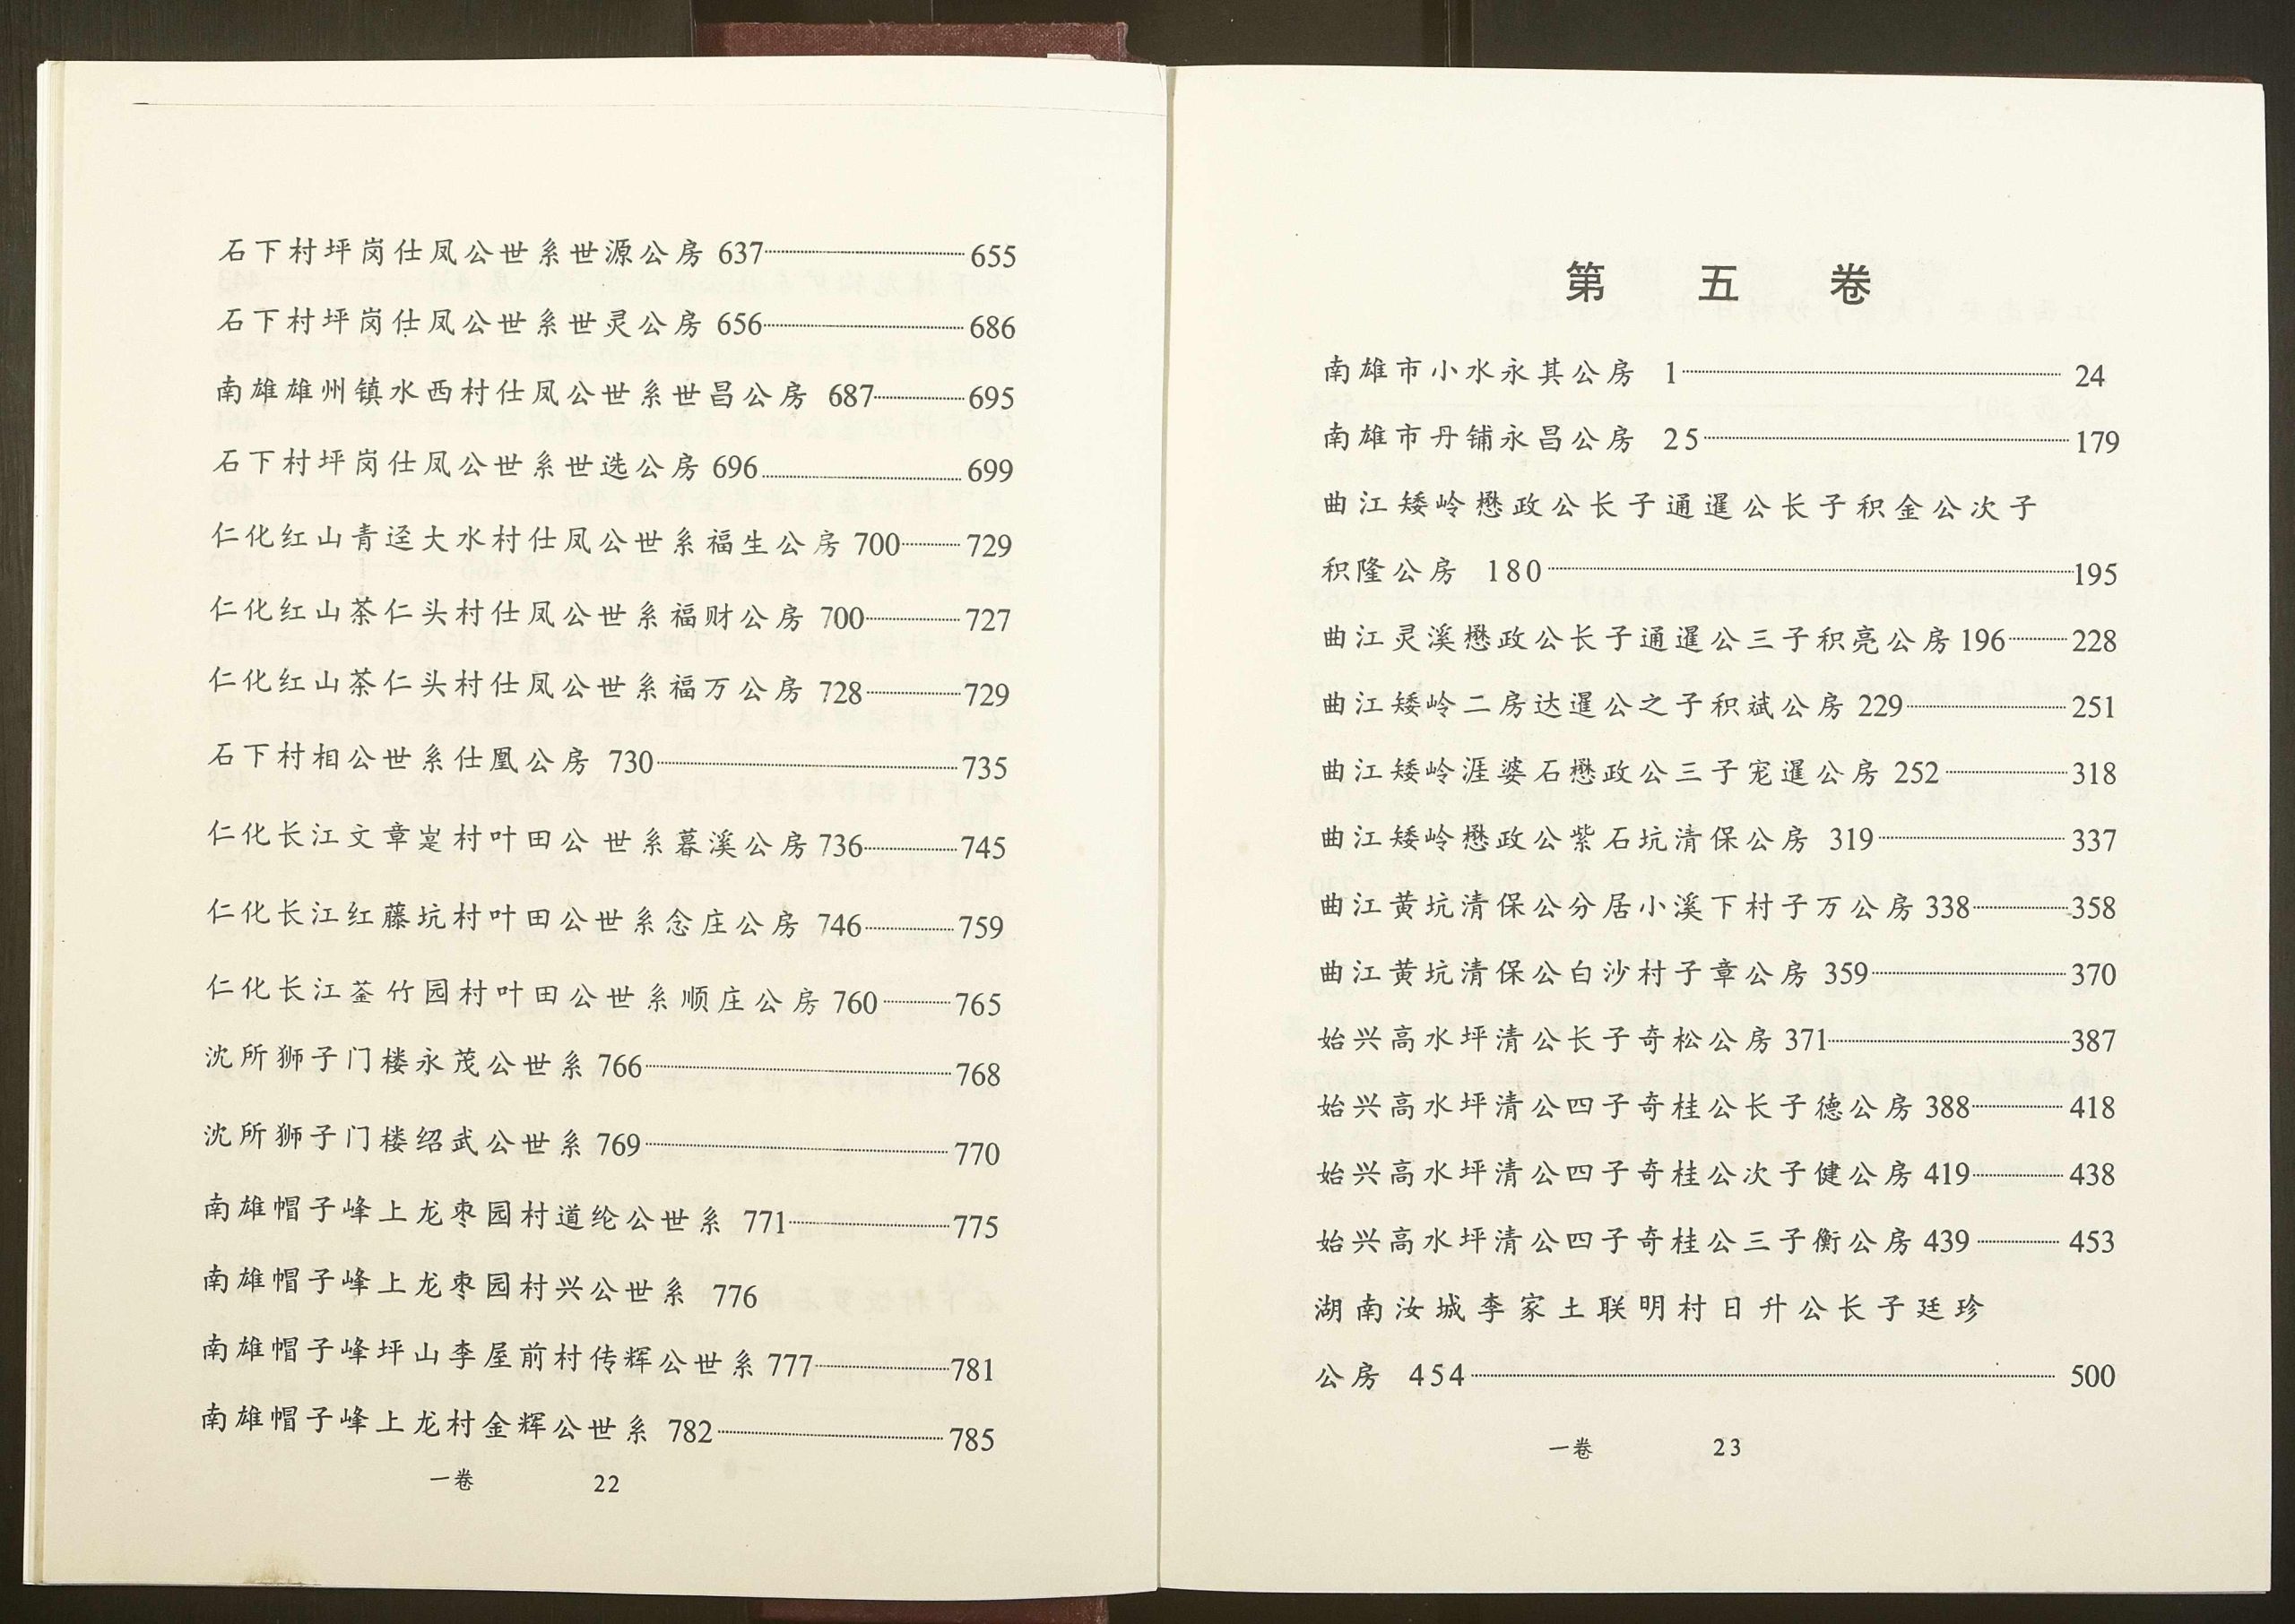 石下村坪岗仕凤公世系世源公房 637 655
石下村坪岗仕凤公世系世灵公房 656 686
南雄雄州镇水西村仕凤公世系世昌公房 687 695
石下村坪岗仕凤公世系世选公房 696 699
仁化红山青迳大水村仕凤公世系福生公房 700 729
仁化红山茶仁头村仕凤公世系福财公房 700 727
仁化红山茶仁头村仕凤公世系福万公房 728 729
石下村相公世系仕凰公房 730 735
仁化长江文章嵏村叶田公 世系暮溪公房 736 745
仁化长江红藤坑村叶田公世系念庄公房 746 759
仁化长江荃竹园村叶田公世系顺庄公房 760 765
沈所狮子门楼永茂公世系 766 768
沈所狮子门楼绍武公世系 769 770
南雄帽子峰上龙枣园村道纶公世系 771 775
南雄帽子峰上龙枣园村兴公世系 776
南雄帽子峰坪山李屋前村传辉公世系 777 781
南雄帽子峰上龙村金辉公世系 782 785
一卷 22
第 五 卷
南雄市小水永其公房 1 24
南雄市丹铺永昌公房 25 179
曲江矮岭懋政公长子通暹公长子积金公次子
积隆公房 180 195
曲江灵溪懋政公长子通暹公三子积亮公房 196 228
曲江矮岭二房达暹公之子积斌公房 229 251
曲江矮岭涯婆石懋政公三子宠暹公房 252 318
曲江矮岭懋政公紫石坑清保公房 319 337
曲江黄坑清保公分居小溪下村子万公房 338 358
曲江黄坑清保公白沙村子章公房 359 370
始兴高水坪清公长子奇松公房 371 387
始兴高水坪清公四子奇桂公长子德公房 388 418
始兴高水坪清公四子奇桂公次子健公房 419 438
始兴高水坪清公四子奇桂公三子衡公房 439 453
湖南汝城李家土联明村日升公长子廷珍
公房 454 500
一卷 23